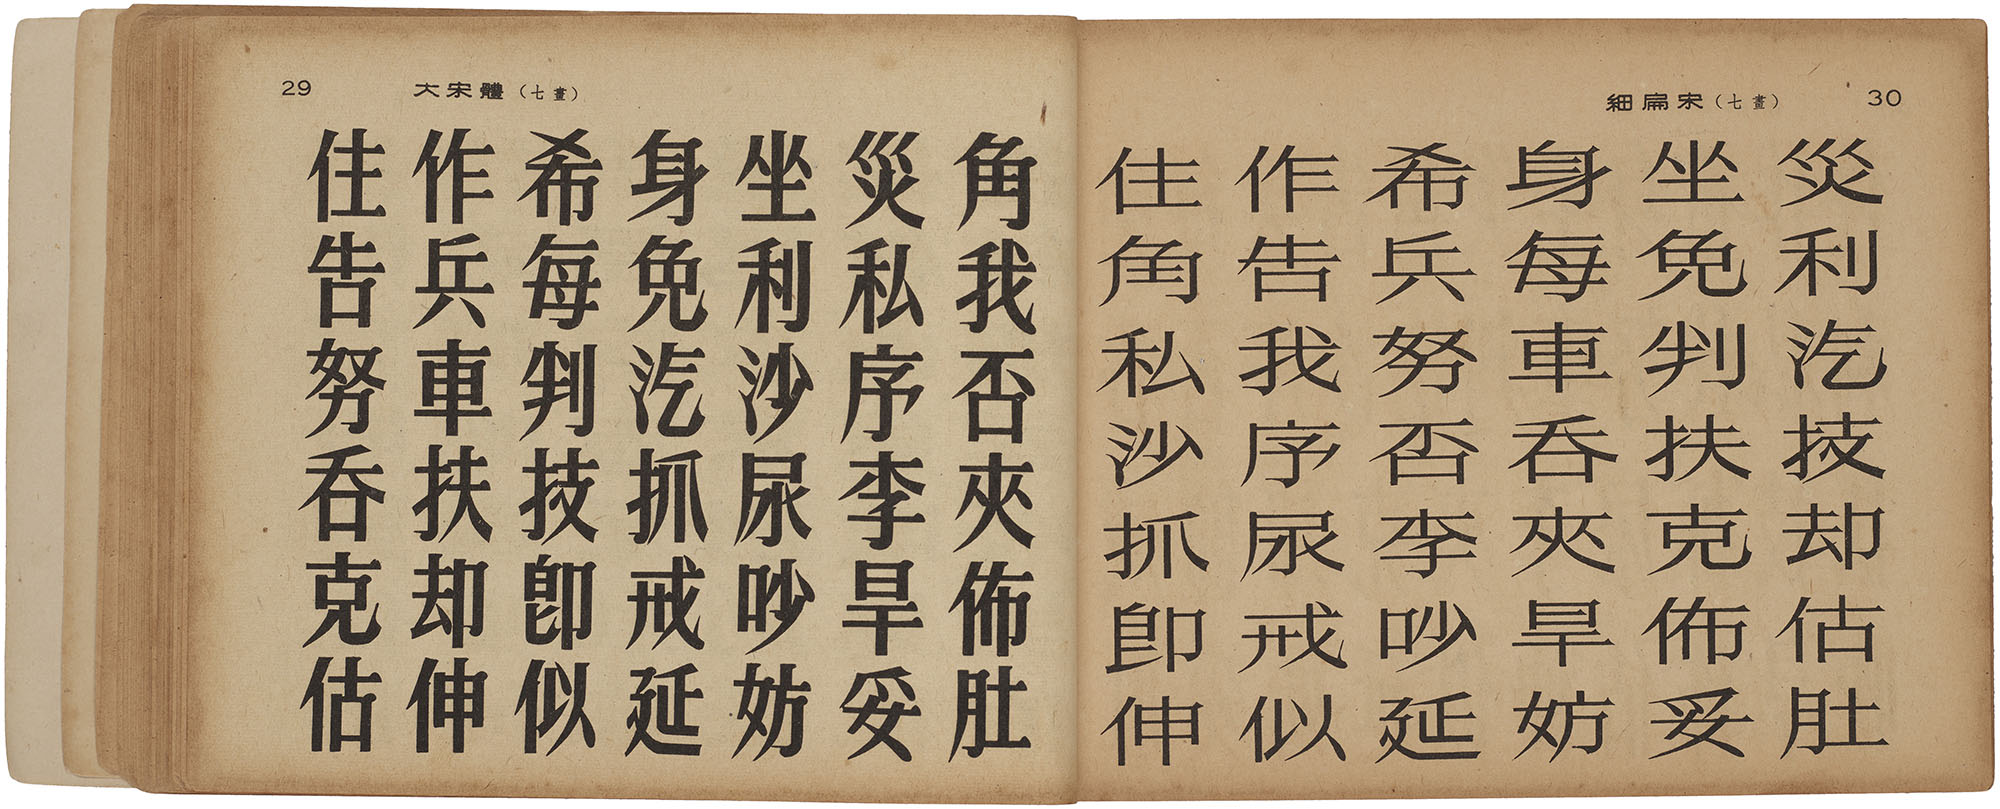 29
大宋體（七畫）
住作希身坐災角
告兵每免利私我
努車判汔沙序否
吞扶技抓尿李夾
克却卽戒吵旱佈
估伸似延妨妥肚
細扁宋（七畫）
30
住作希身坐災
角告兵每免利
私我努車判汔
沙序否吞扶技
抓尿李夾克却
卽戒吵旱佈估
伸似延妨妥肚